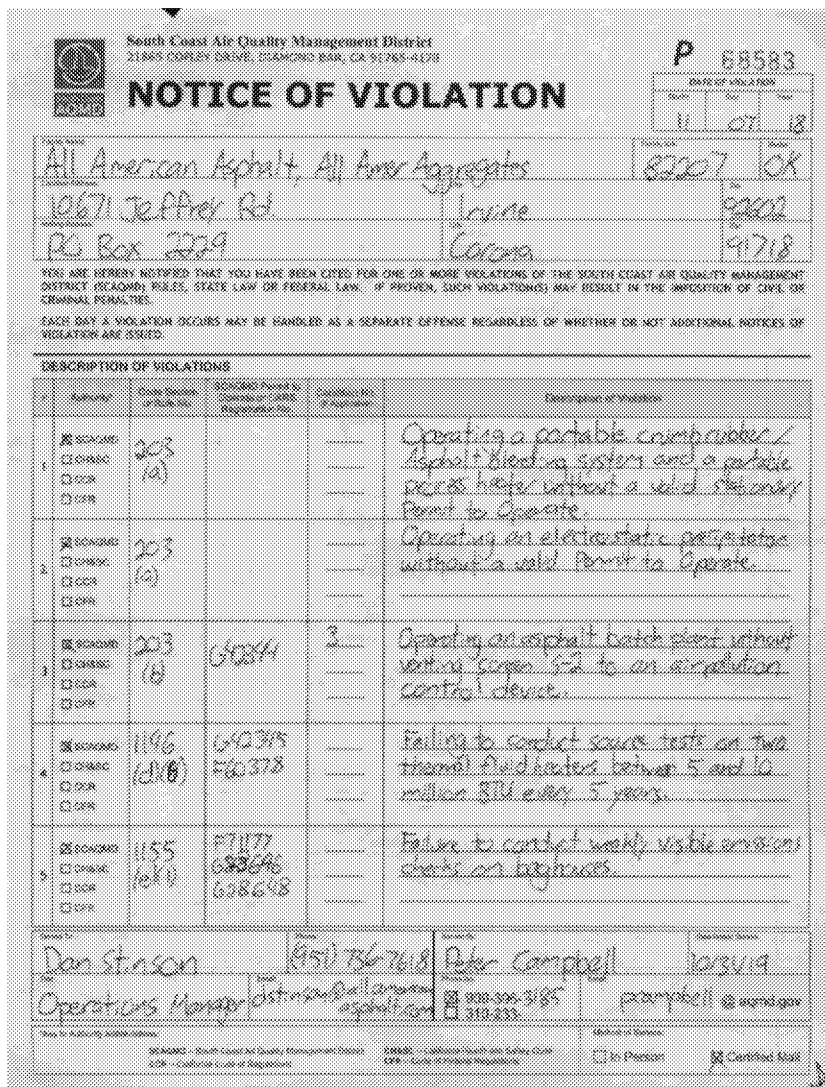 South Coast Air Quality Management District
21865 COPLEY DRIVE, DIAMOND BAR, CA 91765-4178
P 68583
NOTICE OF VIOLATION
DATE OF VIOLATION
Month Day Year
11 07 18
Facility Name:
All American Asphalt, All Amer Aggregates
82207
OK
Location Address:
10671 Jeffrey Rd.
Irvine
92602
PO Box 2229
Corona
91718
YOU ARE HEREBY NOTIFIED THAT YOU HAVE BEEN CITED FOR ONE OR MORE VIOLATIONS OF THE SOUTH COAST AIR QUALITY MANAGEMENT
DISTRICT (SCAQMD) RULES, STATE LAW OR FEDERAL LAW. IF PROVEN, SUCH VIOLATION(S) MAY RESULT IN THE IMPOSITION OF CIVIL OR
CRIMINAL PENALTIES.
EACH DAY A VIOLATION OCCURS MAY BE HANDLED AS A SEPARATE OFFENSE REGARDLESS OF WHETHER OR NOT ADDITIONAL NOTICES OF
VIOLATION ARE ISSUED.
DESCRIPTION OF VIOLATIONS
# Authority* Code Section or Rule No. SCAQMD Permit to Operate or CARB Registration No. Condition No. Description of Violation
1. SCAQMD CH&SC CCR CFR
203
(a)
Operating a portable crumb rubber /
Asphalt Bleeding system and a portable
process heater without a valid stationary
Permit to Operate.
2. SCAQMD CH&SC CCR CFR
203
(a)
Operating an electrostatic precipitator
without a valid Permit to Operate.
3. SCAQMD CH&SC CCR CFR
203
(b)
3
Operating an asphalt batch plant without
venting screen S-2 to an air pollution
control device.
4. SCAQMD CH&SC CCR CFR
F60378
Failing to conduct source tests on two
thermal fluid heaters between 5 and 10
million BTU every 5 years.
5. SCAQMD CH&SC CCR CFR
1155
(e)(1)
F71177
G28648
Failure to conduct weekly visible emissions
checks on baghouses.
Dan Stinson
(951) 736-7618
Peter Campbell
Operations Manager
909-396-3185
310-233-
pcampbell @aqmd.gov
*Key to Authority Abbreviations:
SCAQMD – South Coast Air Quality Management District
CH&SC – California Health and Safety Code
CCR – California Code of Regulations
CFR – Code of Federal Regulations
Method of Service:
In Person
Certified Mail